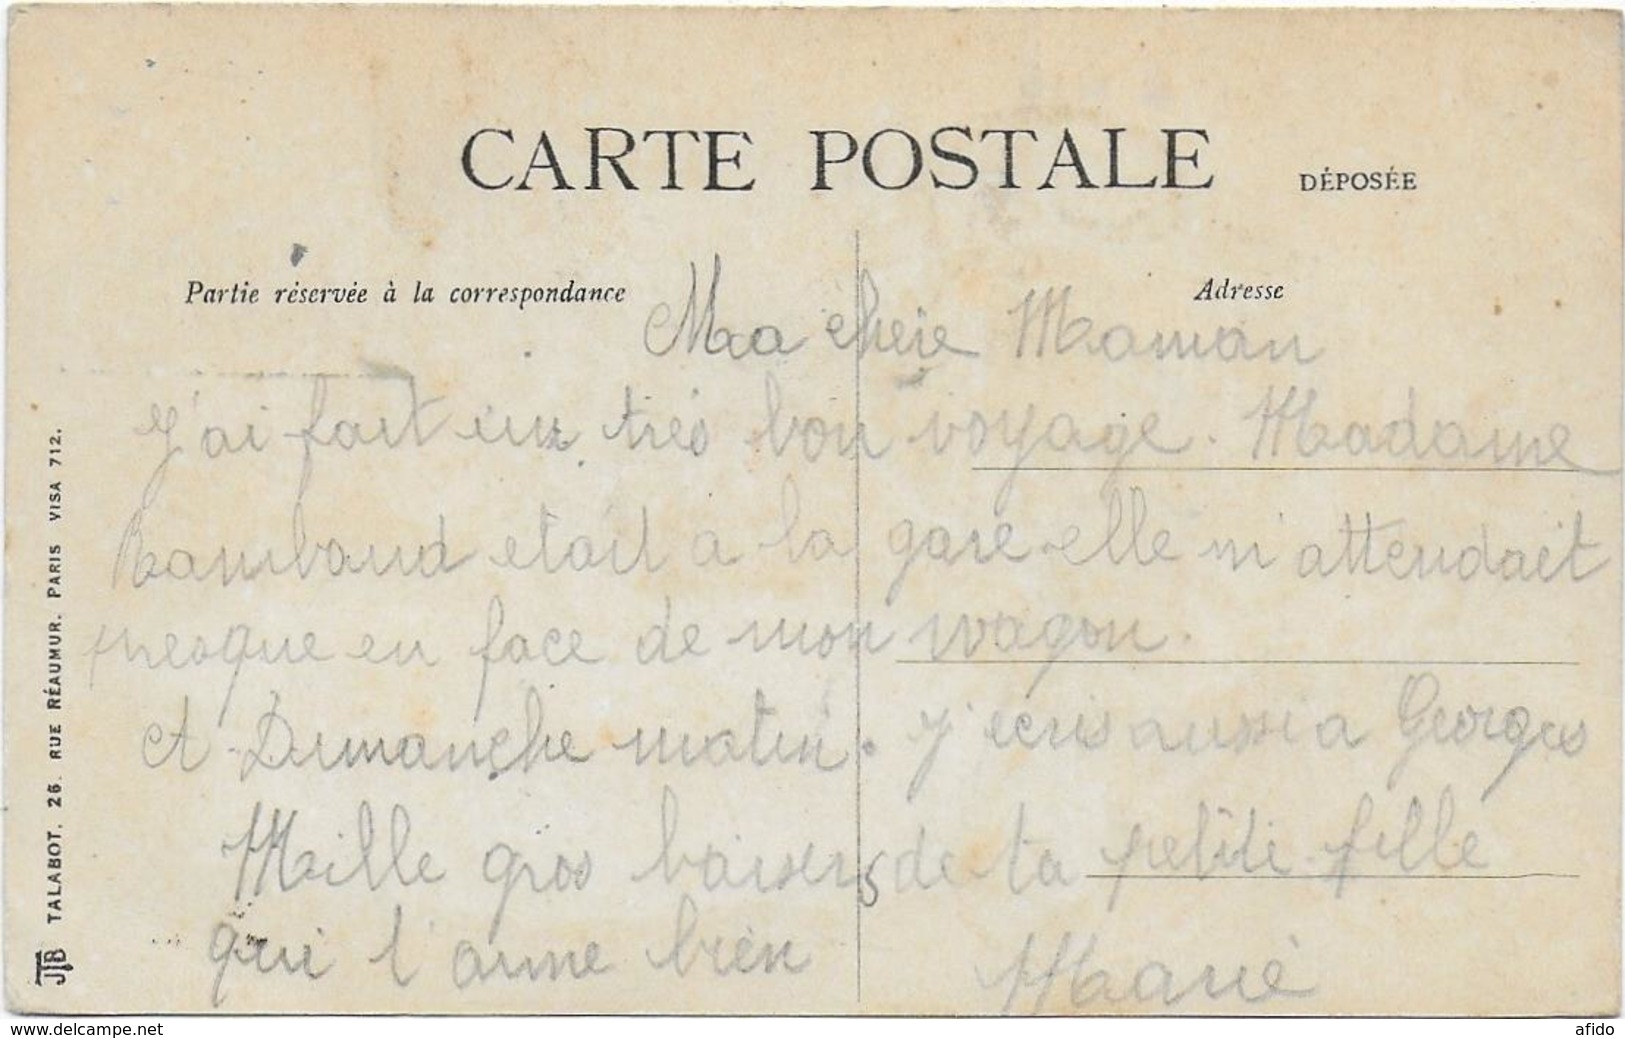 CARTE POSTALE
DÉPOSÉE
Partie réservée à la correspondance
Adresse
Ma chère Maman
J'ai fait un très bon voyage. Madame
Rambaud etait a la gare elle m'attendait
presque en face de mon wagon.
A Dimanche matin. J'ecris aussi a Georges
Mille gros baisers de ta petite fille
qui t'aime bien
Marie
JTB TALABOT. 26. RUE RÉAUMUR. PARIS VISA 712.
www.delcampe.net
afido